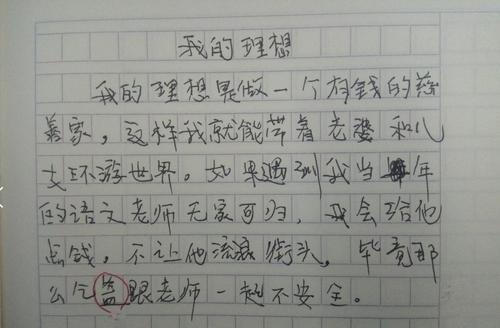 我的理想
我的理想是做一个有钱的慈
善家，这样我就能带着老婆和儿
女环游世界。如果遇到我当年
的语文老师无家可归，我会给他
点钱，不让他流浪街头，毕竟那
么
益跟老师一起不安全。